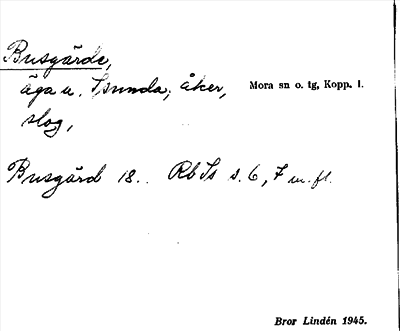 Busgärde,
äga u. Isunda; åker, Mora sn o. tg, Kopp. l.
slog,
Busgärd 18.. Rb Is s. 6, 7 m. fl.
Bror Lindén 1945.